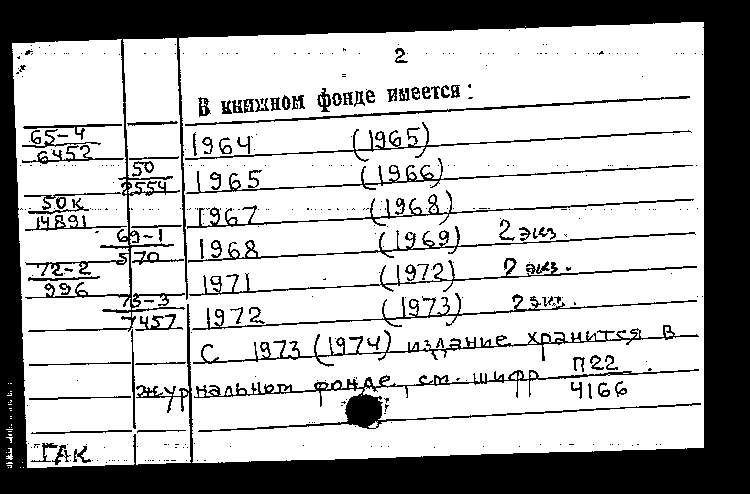 2
В книжном фонде имеется:
65-4
6452
1964 (1965)
50
2554
1965 (1966)
50к
14891
1967 (1968)
69-1
570
1968 (1969) 2 экз.
72-2
996
1971 (1972) 2 экз.
73-3
7457
1972 (1973) 2 экз.
С 1973 (1974) издание хранится в
журнальном фонде, см. шифр П22
4166.
ГАК